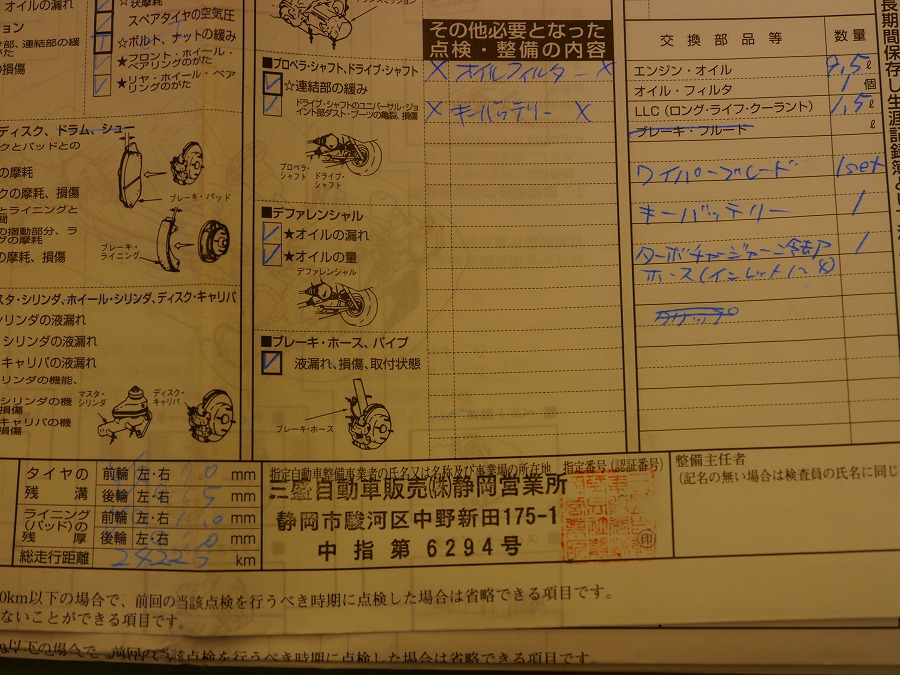 オイルの漏れ
☆伏摩耗
スペアタイヤの空気圧
☆ボルト、ナットの緩み
★フロント・ホイール・
ベアリングのがた
★リヤ・ホイール・ベア
リングのがた
ション
部、連結部の緩
がた
の損傷
ディスク、ドラム、シュー
クとパッドとの
の摩耗
クの摩耗、損傷
とライニングと
の摺動部分、ラ
グの摩耗
の摩耗、損傷
ブレーキ・パッド
ブレーキ・
ライニング
スタ・シリンダ、ホイール・シリンダ、ディスク・キャリパ
シリンダの液漏れ
シリンダの液漏れ
キャリパの液漏れ
リンダの機能、
シリンダの機
損傷
キャリパの機
損傷
マスタ・
シリンダ
ディスク・
キャリパ
■プロペラ・シャフト、ドライブ・シャフト
☆連結部の緩み
ドライブ・シャフトのユニバーサル・ジョ
イント部ダスト・ブーツの亀裂、損傷
プロペラ・
シャフト
ドライブ・
シャフト
■デファレンシャル
★オイルの漏れ
★オイルの量
デファレンシャル
■ブレーキ・ホース、パイプ
液漏れ、損傷、取付状態
ブレーキ・ホース
その他必要となった
点検・整備の内容
× オイルフィルター ×
× キーバッテリー ×
交換部品等 数量
エンジン・オイル 9,5 ℓ
オイル・フィルタ 1 個
LLC（ロング・ライフ・クーラント） 1,5 ℓ
ブレーキ・フルード ℓ
ワイパーブレード 1set
キーバッテリー 1
ターボチャージャー冷却 1
長期間保存し生涯記録簿とし
タイヤの
残溝
前輪 左・右 mm
後輪 左・右 mm
ライニング
(パッド)の
残厚
前輪 左・右 mm
後輪 左・右 mm
総走行距離 km
指定自動車整備事業者の氏名又は名称及び事業場の所在地 指定番号(認証番号)
三菱自動車販売㈱静岡営業所
静岡市駿河区中野新田175-1
中指第6294号
印
整備主任者
(記名の無い場合は検査員の氏名に同じ
0km以下の場合で、前回の当該点検を行うべき時期に点検した場合は省略できる項目です。
ないことができる項目です。
以下の場合で、前回の当該点検を行うべき時期に点検した場合は省略できる項目です。